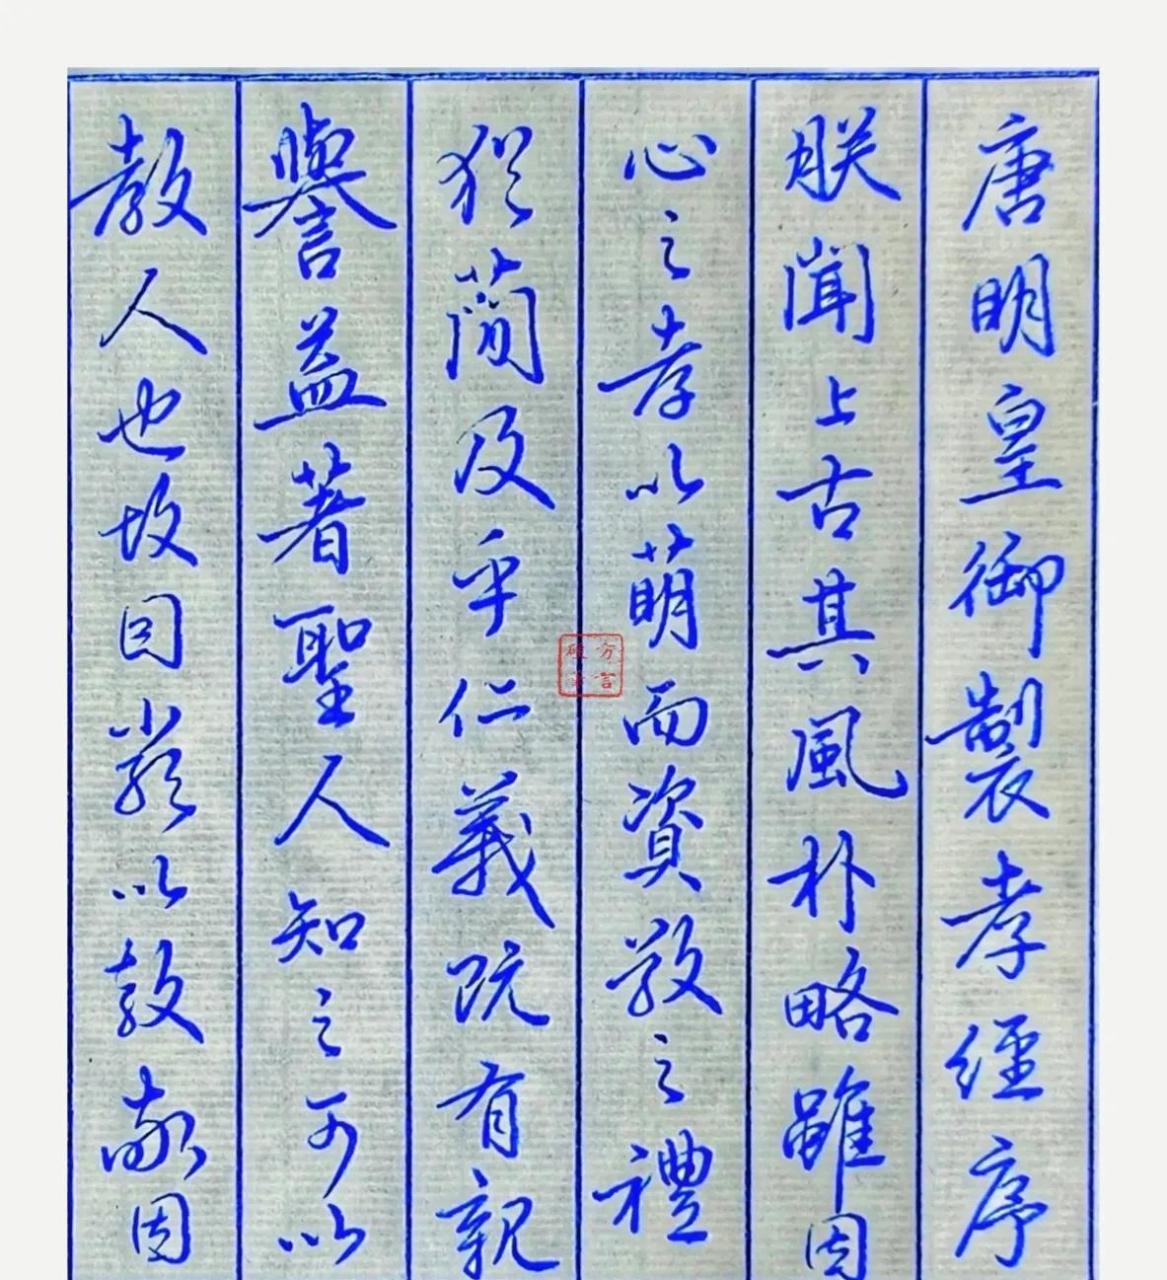 唐明皇御製孝經序
朕聞上古其風朴略雖因
心之孝以萌而資敬之禮
猶簡及乎仁義既有親
譽益著聖人知之可以
教人也故因嚴以教敬因